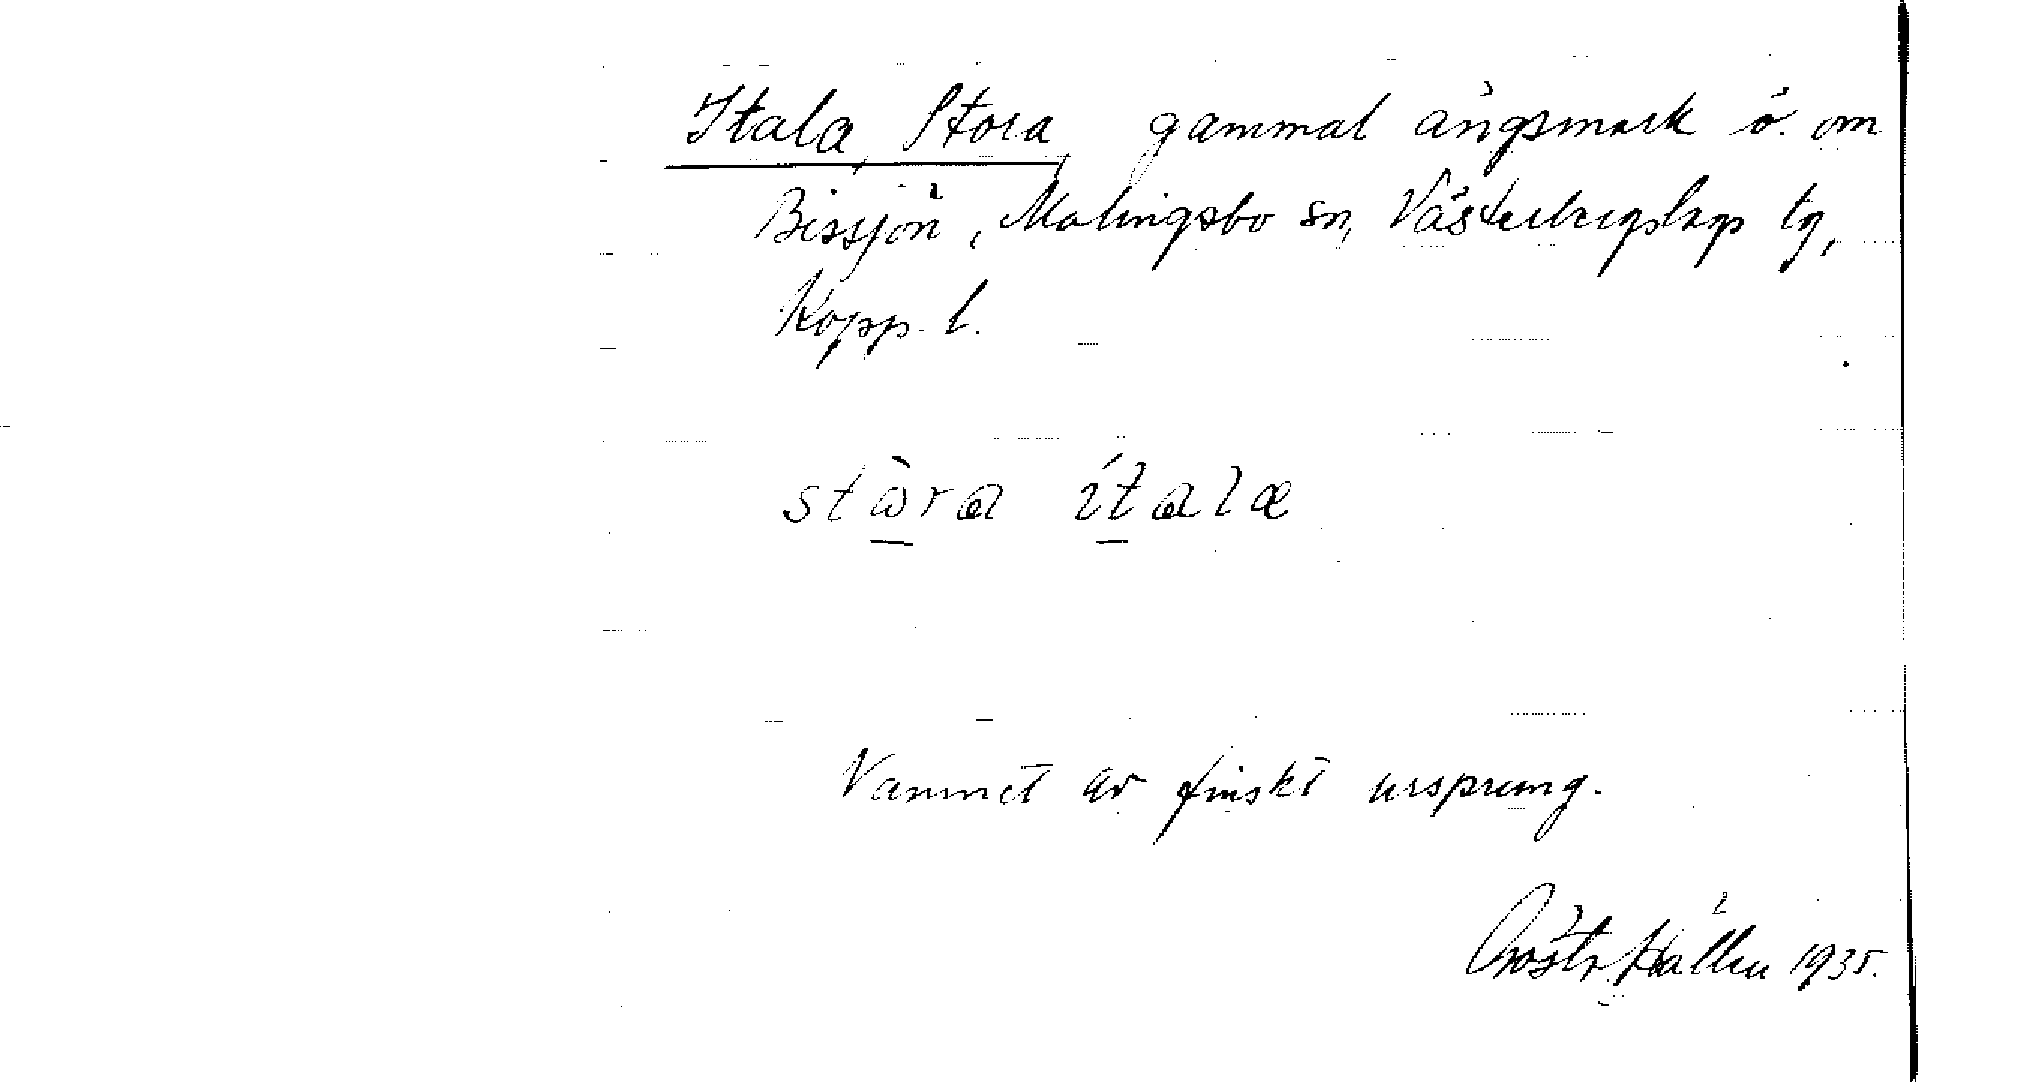 Itala, Stora, gammal ängsmark ö. om
Bissjön, Malingsbo sn, Västerbergslags tg,
Kopp. l.
stⱥra ítala
Namnet av finskt ursprung.
Hällen 1935.